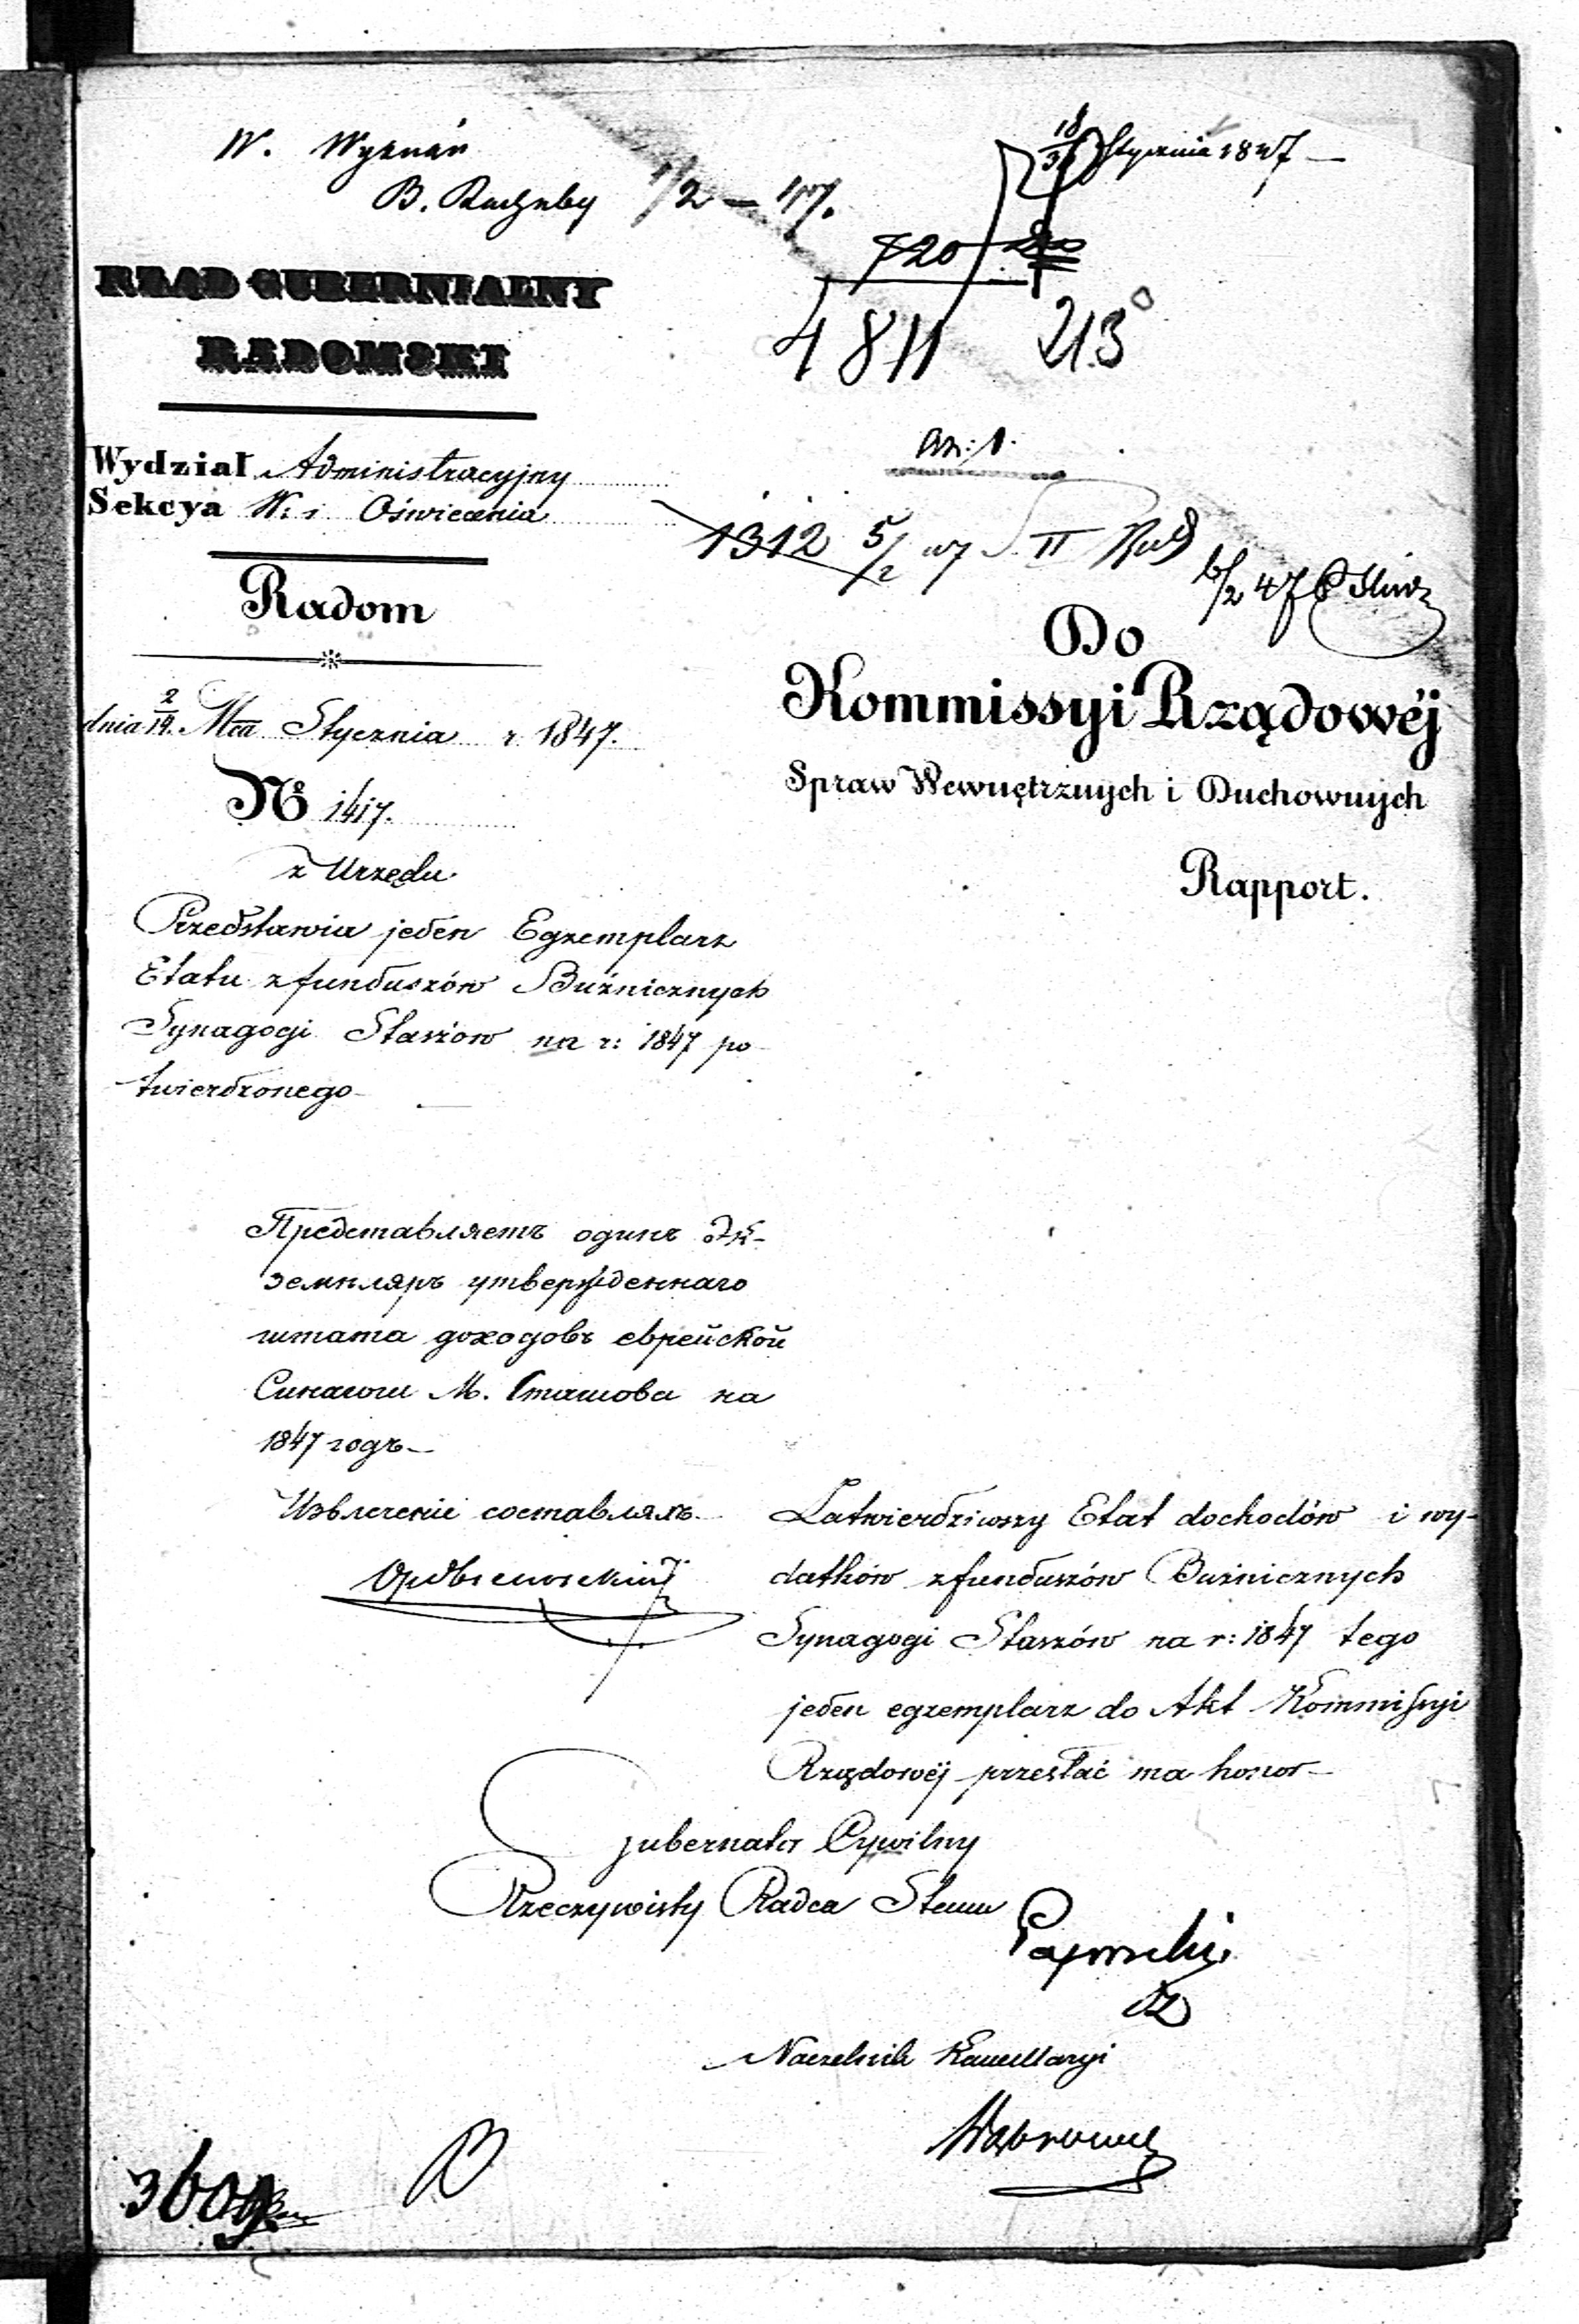 W. Wyznań
B. Rachuby 1/2 — 47.
18/30 Stycznia 1847 —
720
4811 213
RZĄD GUBERNIALNY
RADOMSKI
Wydział Administracyjny
Sekcya W. i Oświecenia
1312 5/2 47 S. II
6/2 47
Radom
dnia 2/14. Mca Stycznia r. 1847.
№ 1417.
z Urzędu
Przedstawia jeden Egzemplarz
Etatu z funduszów Bużnicznych
Synagogi Staszów na r: 1847 po
twierdzonego
Do
Kommissyi Rządowéj
Spraw Wewnętrznych i Duchownych
Rapport.
Представляетъ одинъ Эк-
земпляръ утвержденнаго
штата доходовъ еврейской
Синагоги М. Сташова на
1847 годъ—
Извлеченіе составлялъ
Zatwierdziwszy Etat dochodów i wy-
datków z funduszów Bużnicznych
Synagogi Staszów na r: 1847 tego
jeden egzemplarz do Akt Kommissyi
Rządowéj przesłać ma honor—
Gubernator Cywilny
Rzeczywisty Radca Stanu
Naczelnik Kancellaryi
3609